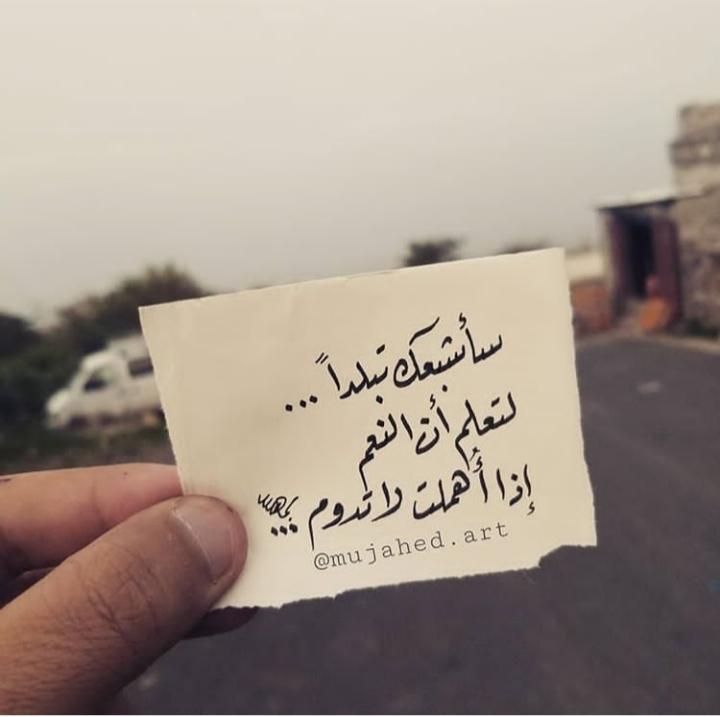 سأشبعك تبلداً ...
لتعلم أن النعم
إذا أُهملت لا تدوم ...
@mujahed.art